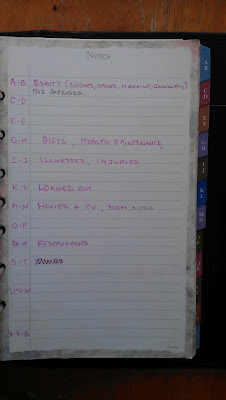 Notes
A-B BEAUTY (CLOTHES, SHOES, MAKE-UP, JEWELERY)
BIZ EXPENSES
C-D
E-F
G-H GIFTS, HEALTH MAINTENANCE,
I-J ILLNESSES, INJURIES
K-L LOANED OUT
M-N MOVIES & TV, MOM, MUSIC
O-P
Q-R RESTAURANTS
S-T
U-V-W
X-Y-Z
AB
CD
EF
GH
IJ
KL
MN